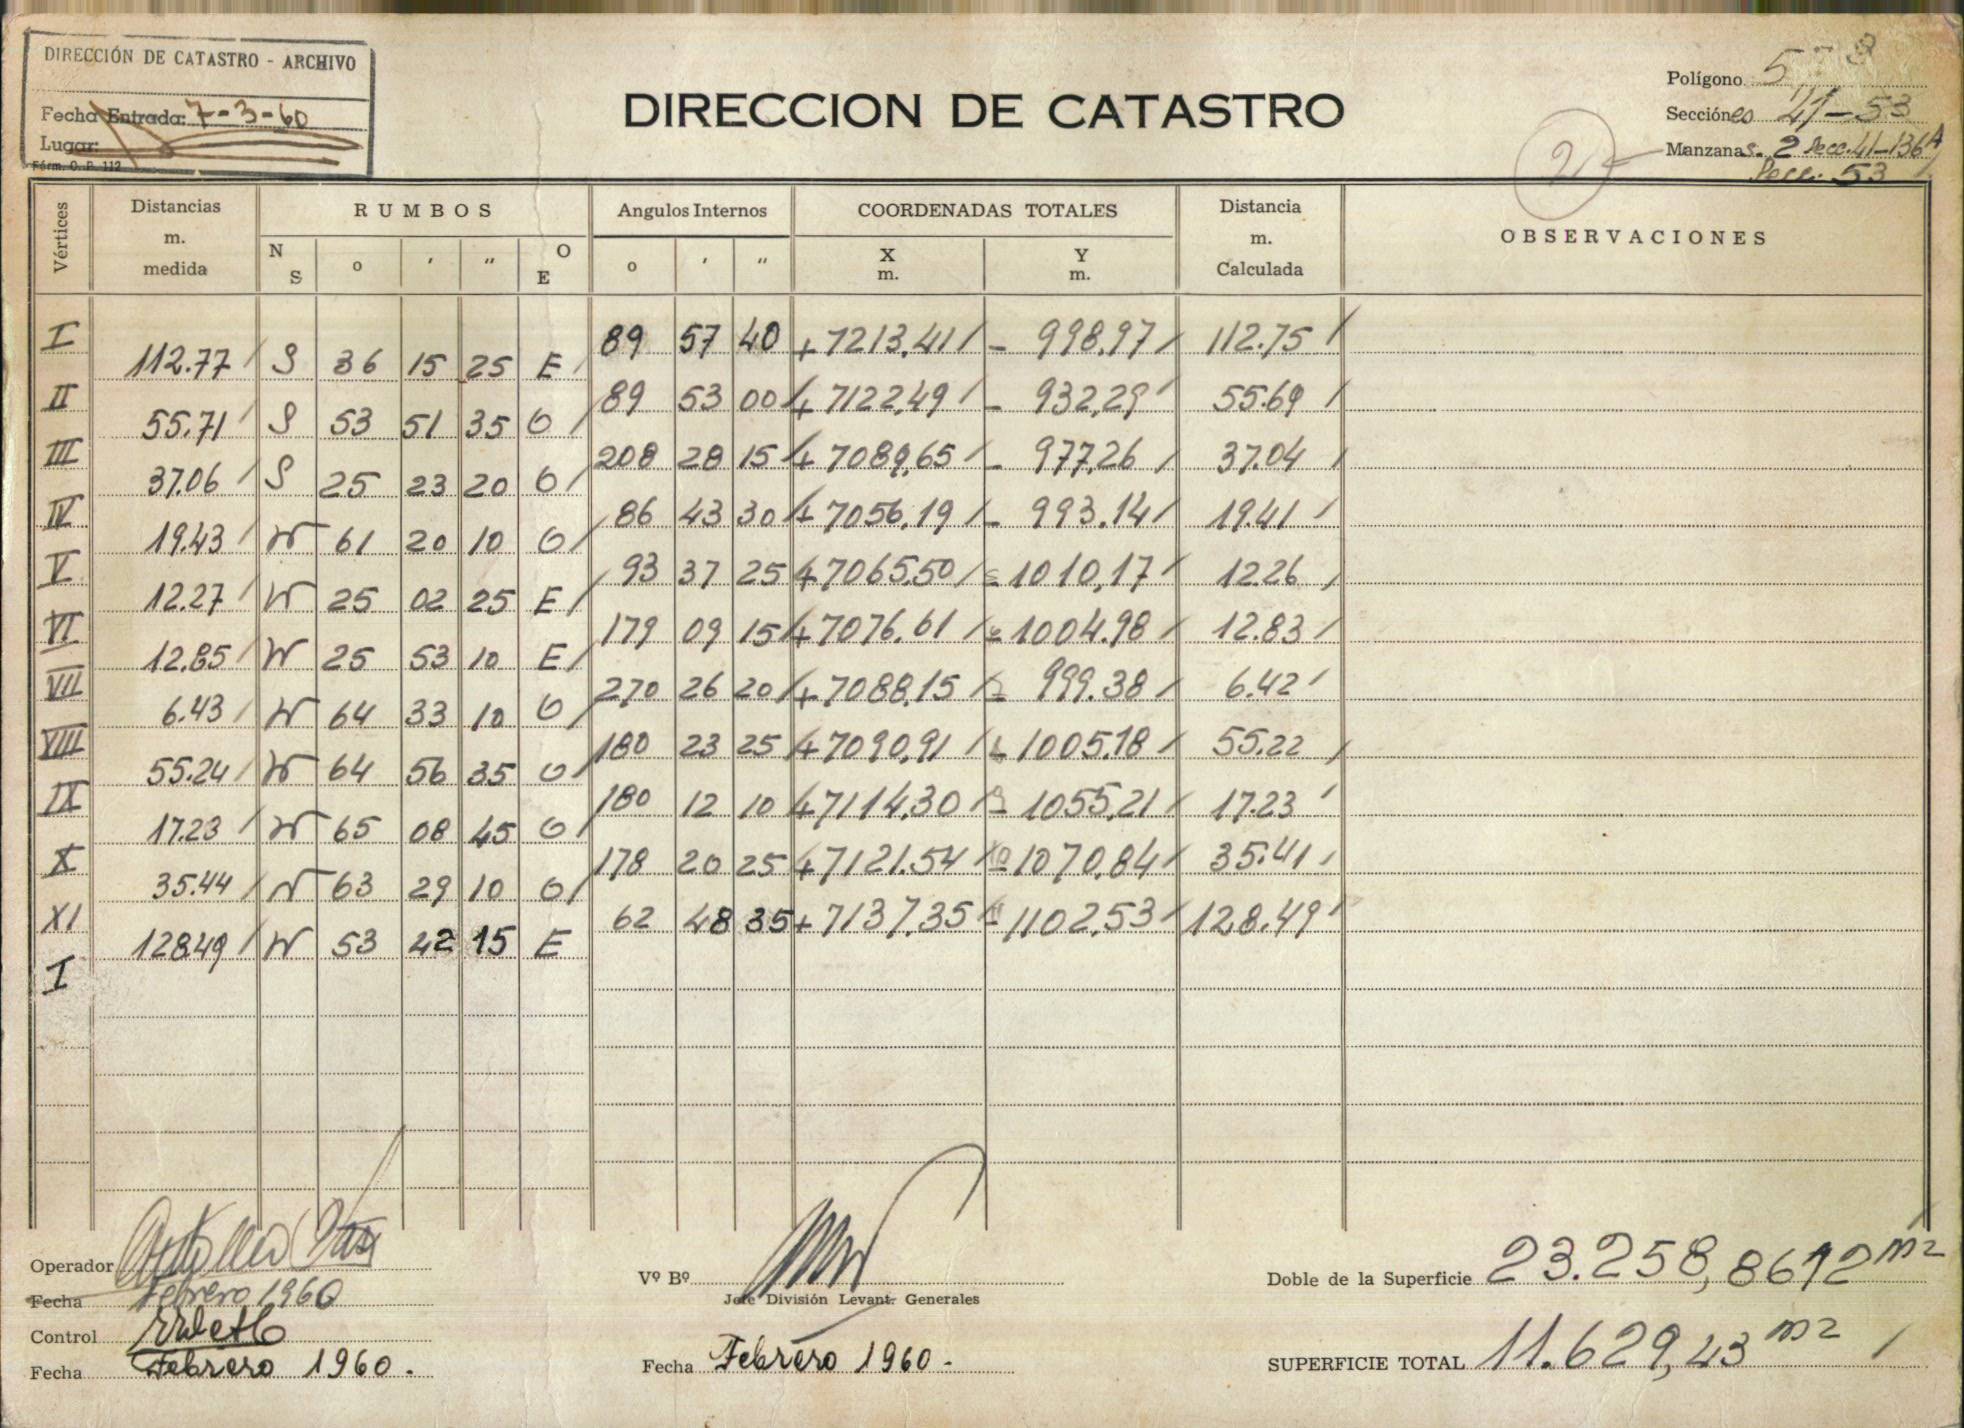 DIRECCIÓN DE CATASTRO - ARCHIVO
Fecha Entrada: 7-3-60
Lugar:
Fórm. O. P. 112
DIRECCION DE CATASTRO
Polígono 5
Secciónes 41-53
Manzanas. 2 Secc. 41-136A
Secc. 53
2
Vértices Distancias m. medida RUMBOS Angulos Internos COORDENADAS TOTALES Distancia m. Calculada OBSERVACIONES
N S o ' " O E o ' " X m. Y m.
I 89 57 40 +7213,41 - 998,97 112.75
112.77 S 36 15 25 E
II 89 53 00 +7122,49 - 932,29 55.69
55.71 S 53 51 35 O
III 208 28 15 +7089,65 - 977,26 37.04
37.06 S 25 23 20 O
IV 86 43 30 +7056,19 - 993,14 19.41
19.43 N 61 20 10 O
V 93 37 25 +7065,50 - 1010,17 12.26
12.27 N 25 02 25 E
VI 179 09 15 +7076,61 - 1004,98 12.83
12.85 N 25 53 10 E
VII 270 26 20 +7088,15 - 999,38 6.42
6.43 N 64 33 10 O
VIII 180 23 25 +7090,91 - 1005,18 55.22
55.24 N 64 56 35 O
IX 180 12 10 +7114,30 - 1055,21 17.23
17.23 N 65 08 45 O
X 178 20 25 +7121,54 - 1070,84 35.41
35.44 N 63 29 10 O
XI 62 48 35 +7137,35 - 1102,53 128.49
128.49 N 53 42 15 E
I
Operador
Fecha Febrero 1960
Control
Fecha Febrero 1960.
Vº Bº
Jefe División Levant. Generales
Fecha Febrero 1960.
Doble de la Superficie 23.258,8612 m2
SUPERFICIE TOTAL 11.629,43 m2